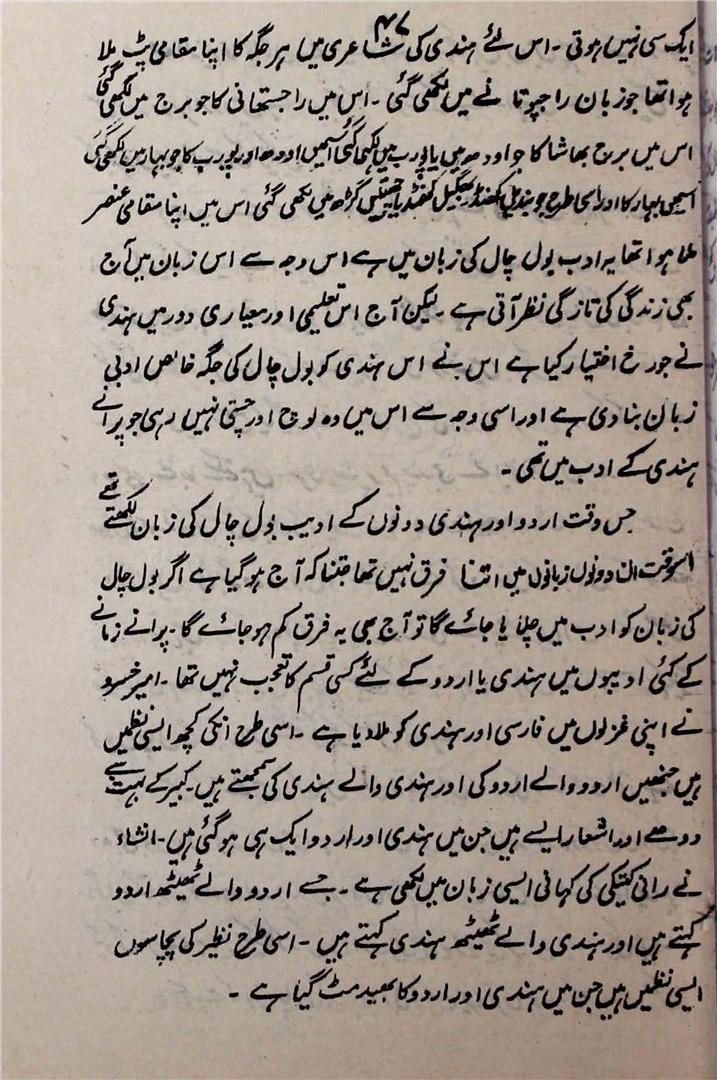 ۴۷
ایک سی نہیں ہوتی ۔ اس لئے ہندی کی شاعری میں ہر جگہ کا اپنا مقامی پٹ ملا
ہوا تھا جو زبان راجپوتانے میں لکھی گئی ۔ اس میں راجستھانی کا جو برج میں لکھی گئی
اس میں برج بھاشا کا جو اودھ میں یا پورب میں لکھی گئی اسمیں اودھ اور پورب کا جو بہار میں لکھی گئی
اسمیں بہار کا اور اسی طرح جو بندیل کھنڈ بگھیل کھنڈ یا چھتیس گڑھ میں لکھی گئی اس میں اپنا مقامی عنصر
ملا ہوا تھا یہ ادب بول چال کی زبان میں ہے اس وجہ سے اس زبان میں آج
بھی زندگی کی تازگی نظر آتی ہے ۔ لیکن آج اس تعلیمی اور معیاری دور میں ہندی
نے جو رخ اختیار کیا ہے اس نے اس ہندی کو بول چال کی جگہ خالص ادبی
زبان بنا دی ہے اور اسی وجہ سے اس میں وہ لوچ اور چستی نہیں رہی جو پرانے
ہندی کے ادب میں تھی ۔
جس وقت اردو اور ہندی دونوں کے ادیب بول چال کی زبان لکھتے تھے
اسوقت ان دونوں زبانوں میں اتنا فرق نہیں تھا جتنا کہ آج ہو گیا ہے اگر بول چال
کی زبان کو ادب میں چلایا جائے گا تو آج بھی یہ فرق کم ہو جائے گا ۔ پرانے زمانے
کے کئی ادیبوں میں ہندی یا اردو کے لئے کسی قسم کا تعجب نہیں تھا ۔ امیر خسرو
نے اپنی غزلوں میں فارسی اور ہندی کو ملا دیا ہے ۔ اسی طرح انکی کچھ ایسی نظمیں
ہیں جنھیں اردو والے اردو کی اور ہندی والے ہندی کی سمجھتے ہیں ۔ کبیر کے بہت سے
دوھے اور اشعار ایسے ہیں جن میں ہندی اور اردو ایک ہی ہو گئی ہیں ۔ انشاء
نے رانی کیتکی کی کہانی ایسی زبان میں لکھی ہے ۔ جسے اردو والے ٹھیٹھ اردو
کہتے ہیں اور ہندی والے ٹھیٹھ ہندی کہتے ہیں ۔ اسی طرح نظیر کی پچاسوں
ایسی نظمیں ہیں جن میں ہندی اور اردو کا بھید مٹ گیا ہے ۔